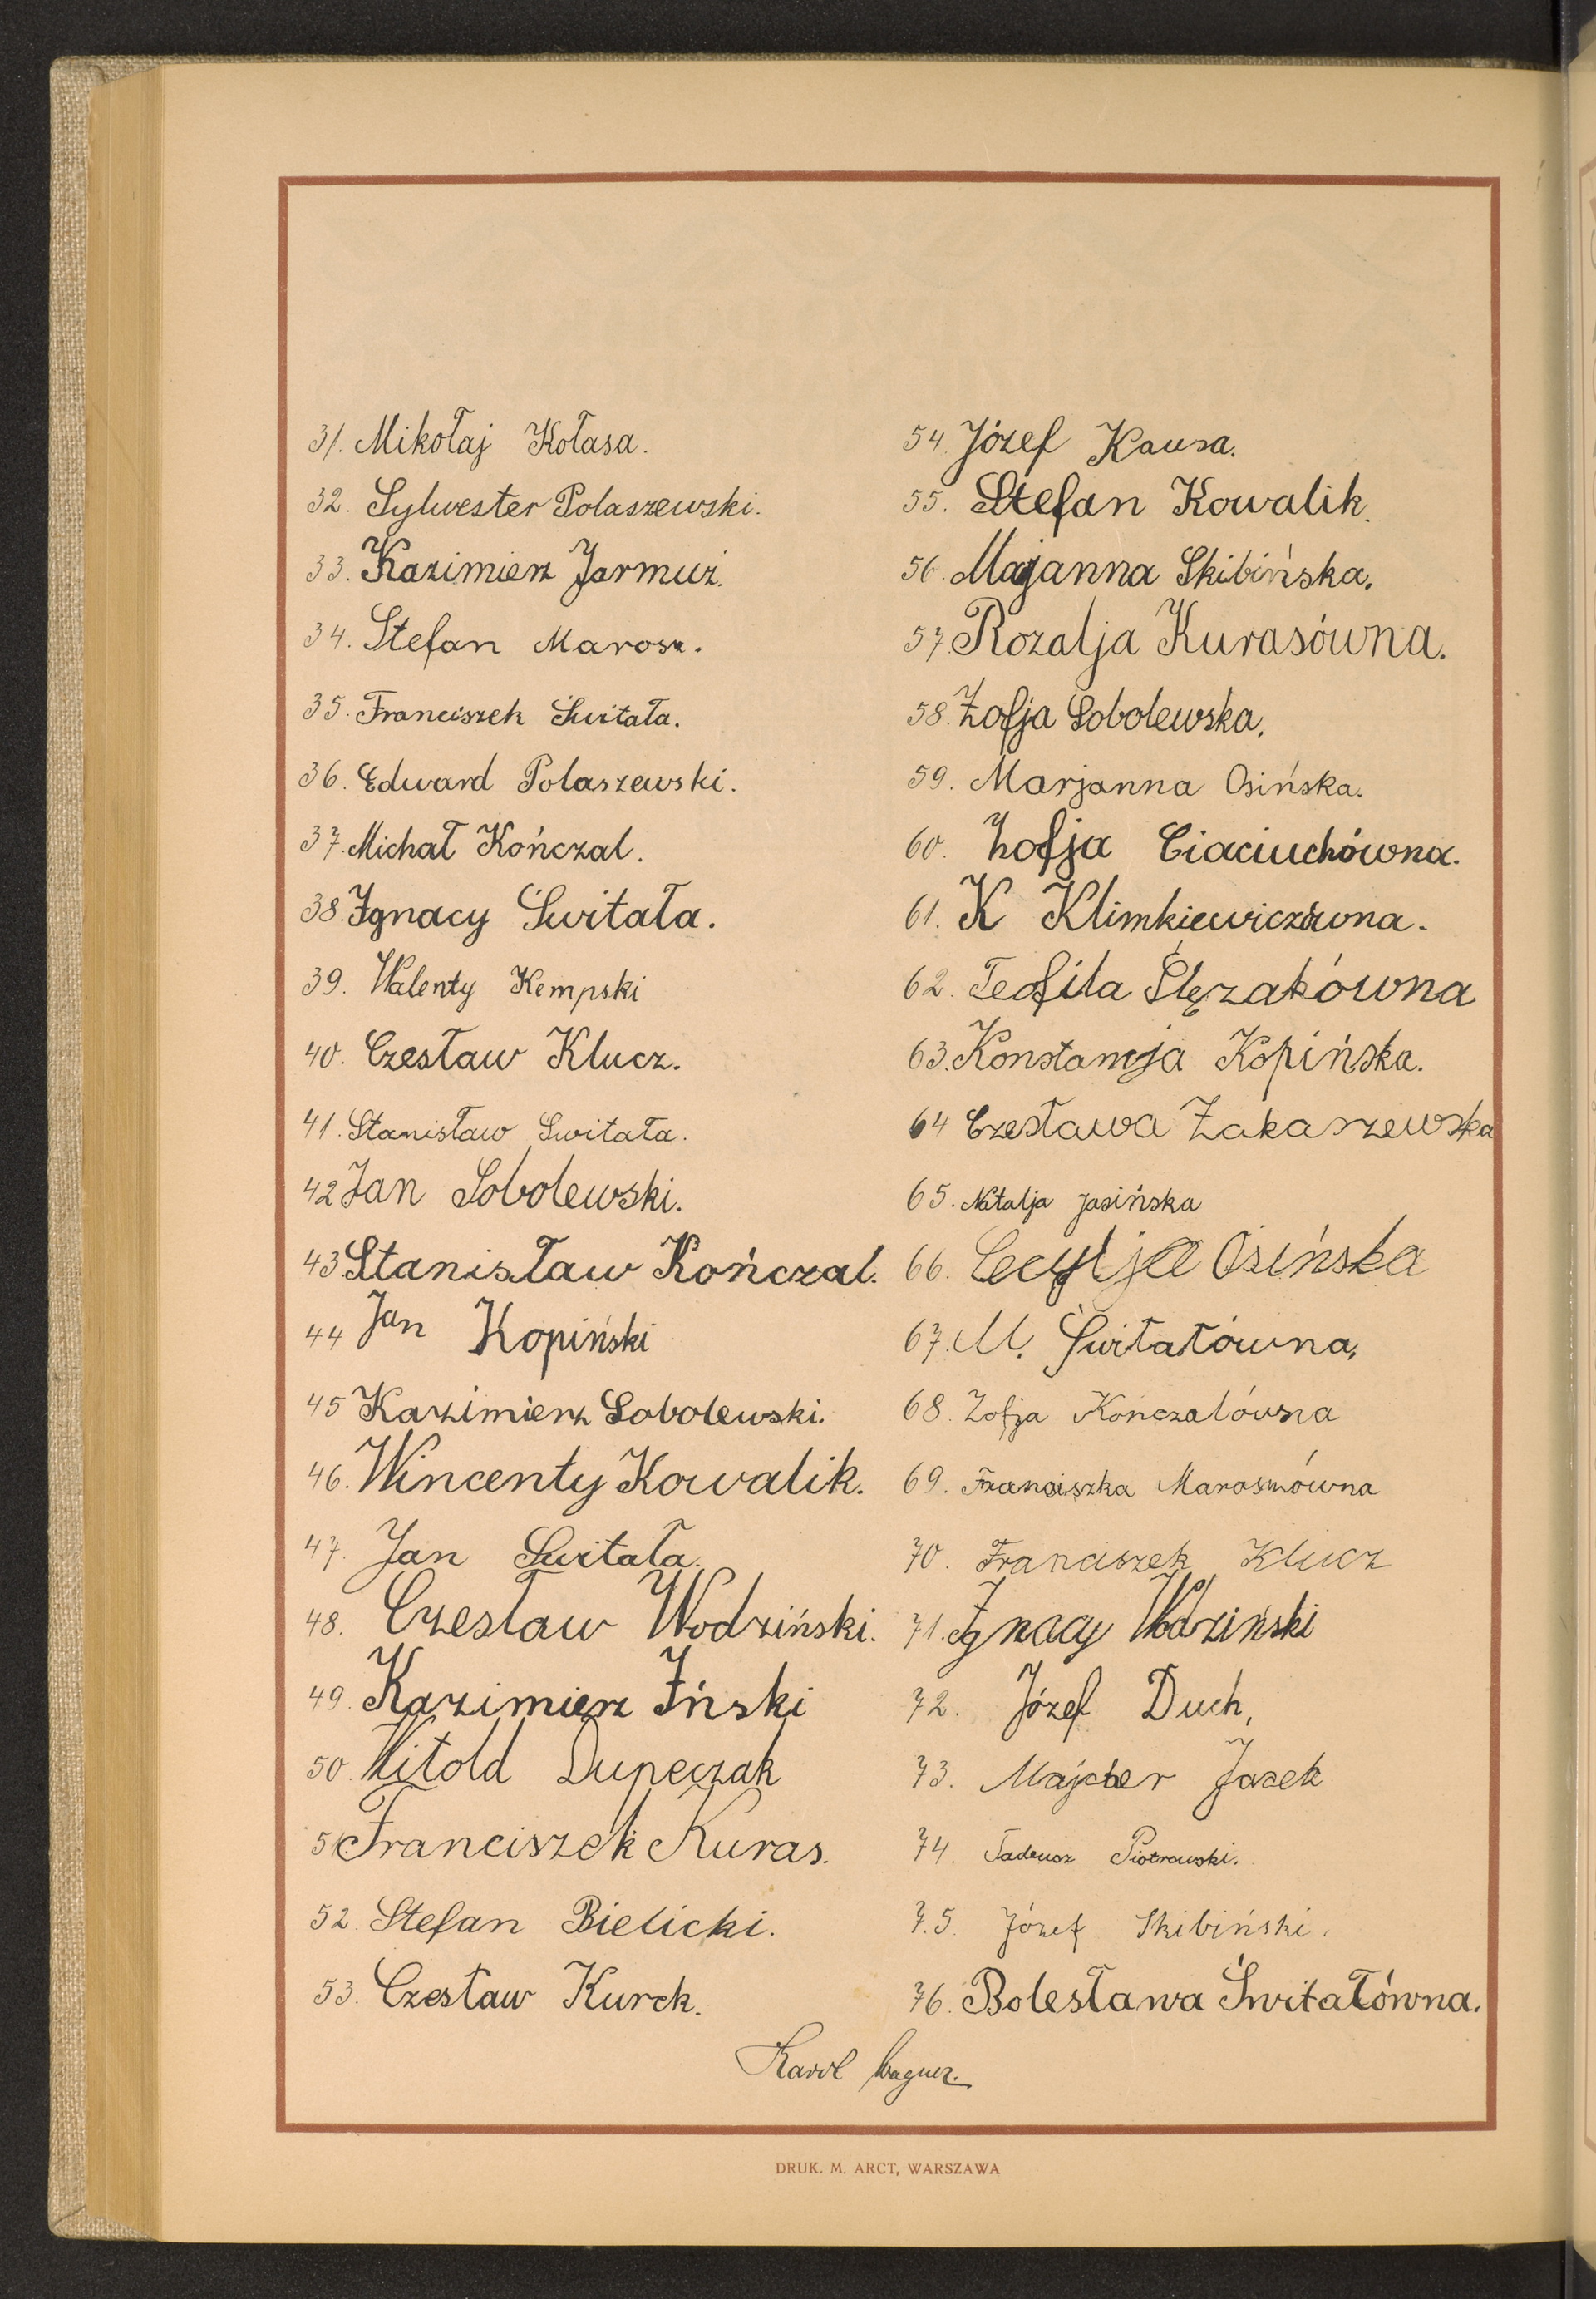 31. Mikołaj Kołasa.
32. Sylwester Polaszewski.
33. Kazimierz Jarmuż.
34. Stefan Marosz.
35. Franciszek Świtała.
36. Edward Polaszewski.
37. Michał Kończal.
38. Ignacy Świtała.
39. Walenty Kempski
40. Czesław Klucz.
41. Stanisław Świtała.
42 Jan Sobolewski.
43 Stanisław Kończal.
44 Jan Kopiński
45 Kazimierz Sobolewski.
46. Wincenty Kowalik.
47. Jan Świtała.
48. Czesław Wodziński.
49. Kazimierz Iński
50. Witold Dupeczak
51 Franciszek Kuras.
52. Stefan Bielicki.
53. Czesław Kurek.
54. Józef Kausa.
55. Stefan Kowalik.
56. Marjanna Skibińska.
57. Rozalja Kurasówna.
58. Zofja Sobolewska.
59. Marjanna Osińska.
60. Zofja Ciaciuchówna.
61. K Klimkiewiczówna.
62. Teofila Ślęzakówna
63. Konstancja Kopińska.
64 Czesława Zakaszewska
65. Natalja Jasińska
66. Cecylja Osińska
67. M. Świtałówna,
68. Zofja Kończalówna
69. Franciszka Maroszówna
70. Franciszek Klucz
71. Ignacy Wodziński
72. Józef Duch,
73. Majcher Jacek
74. Tadeusz Piotrowski.
75. Józef Skibiński.
76. Bolesława Świtałówna.
Karol Wagner.
DRUK. M. ARCT, WARSZAWA